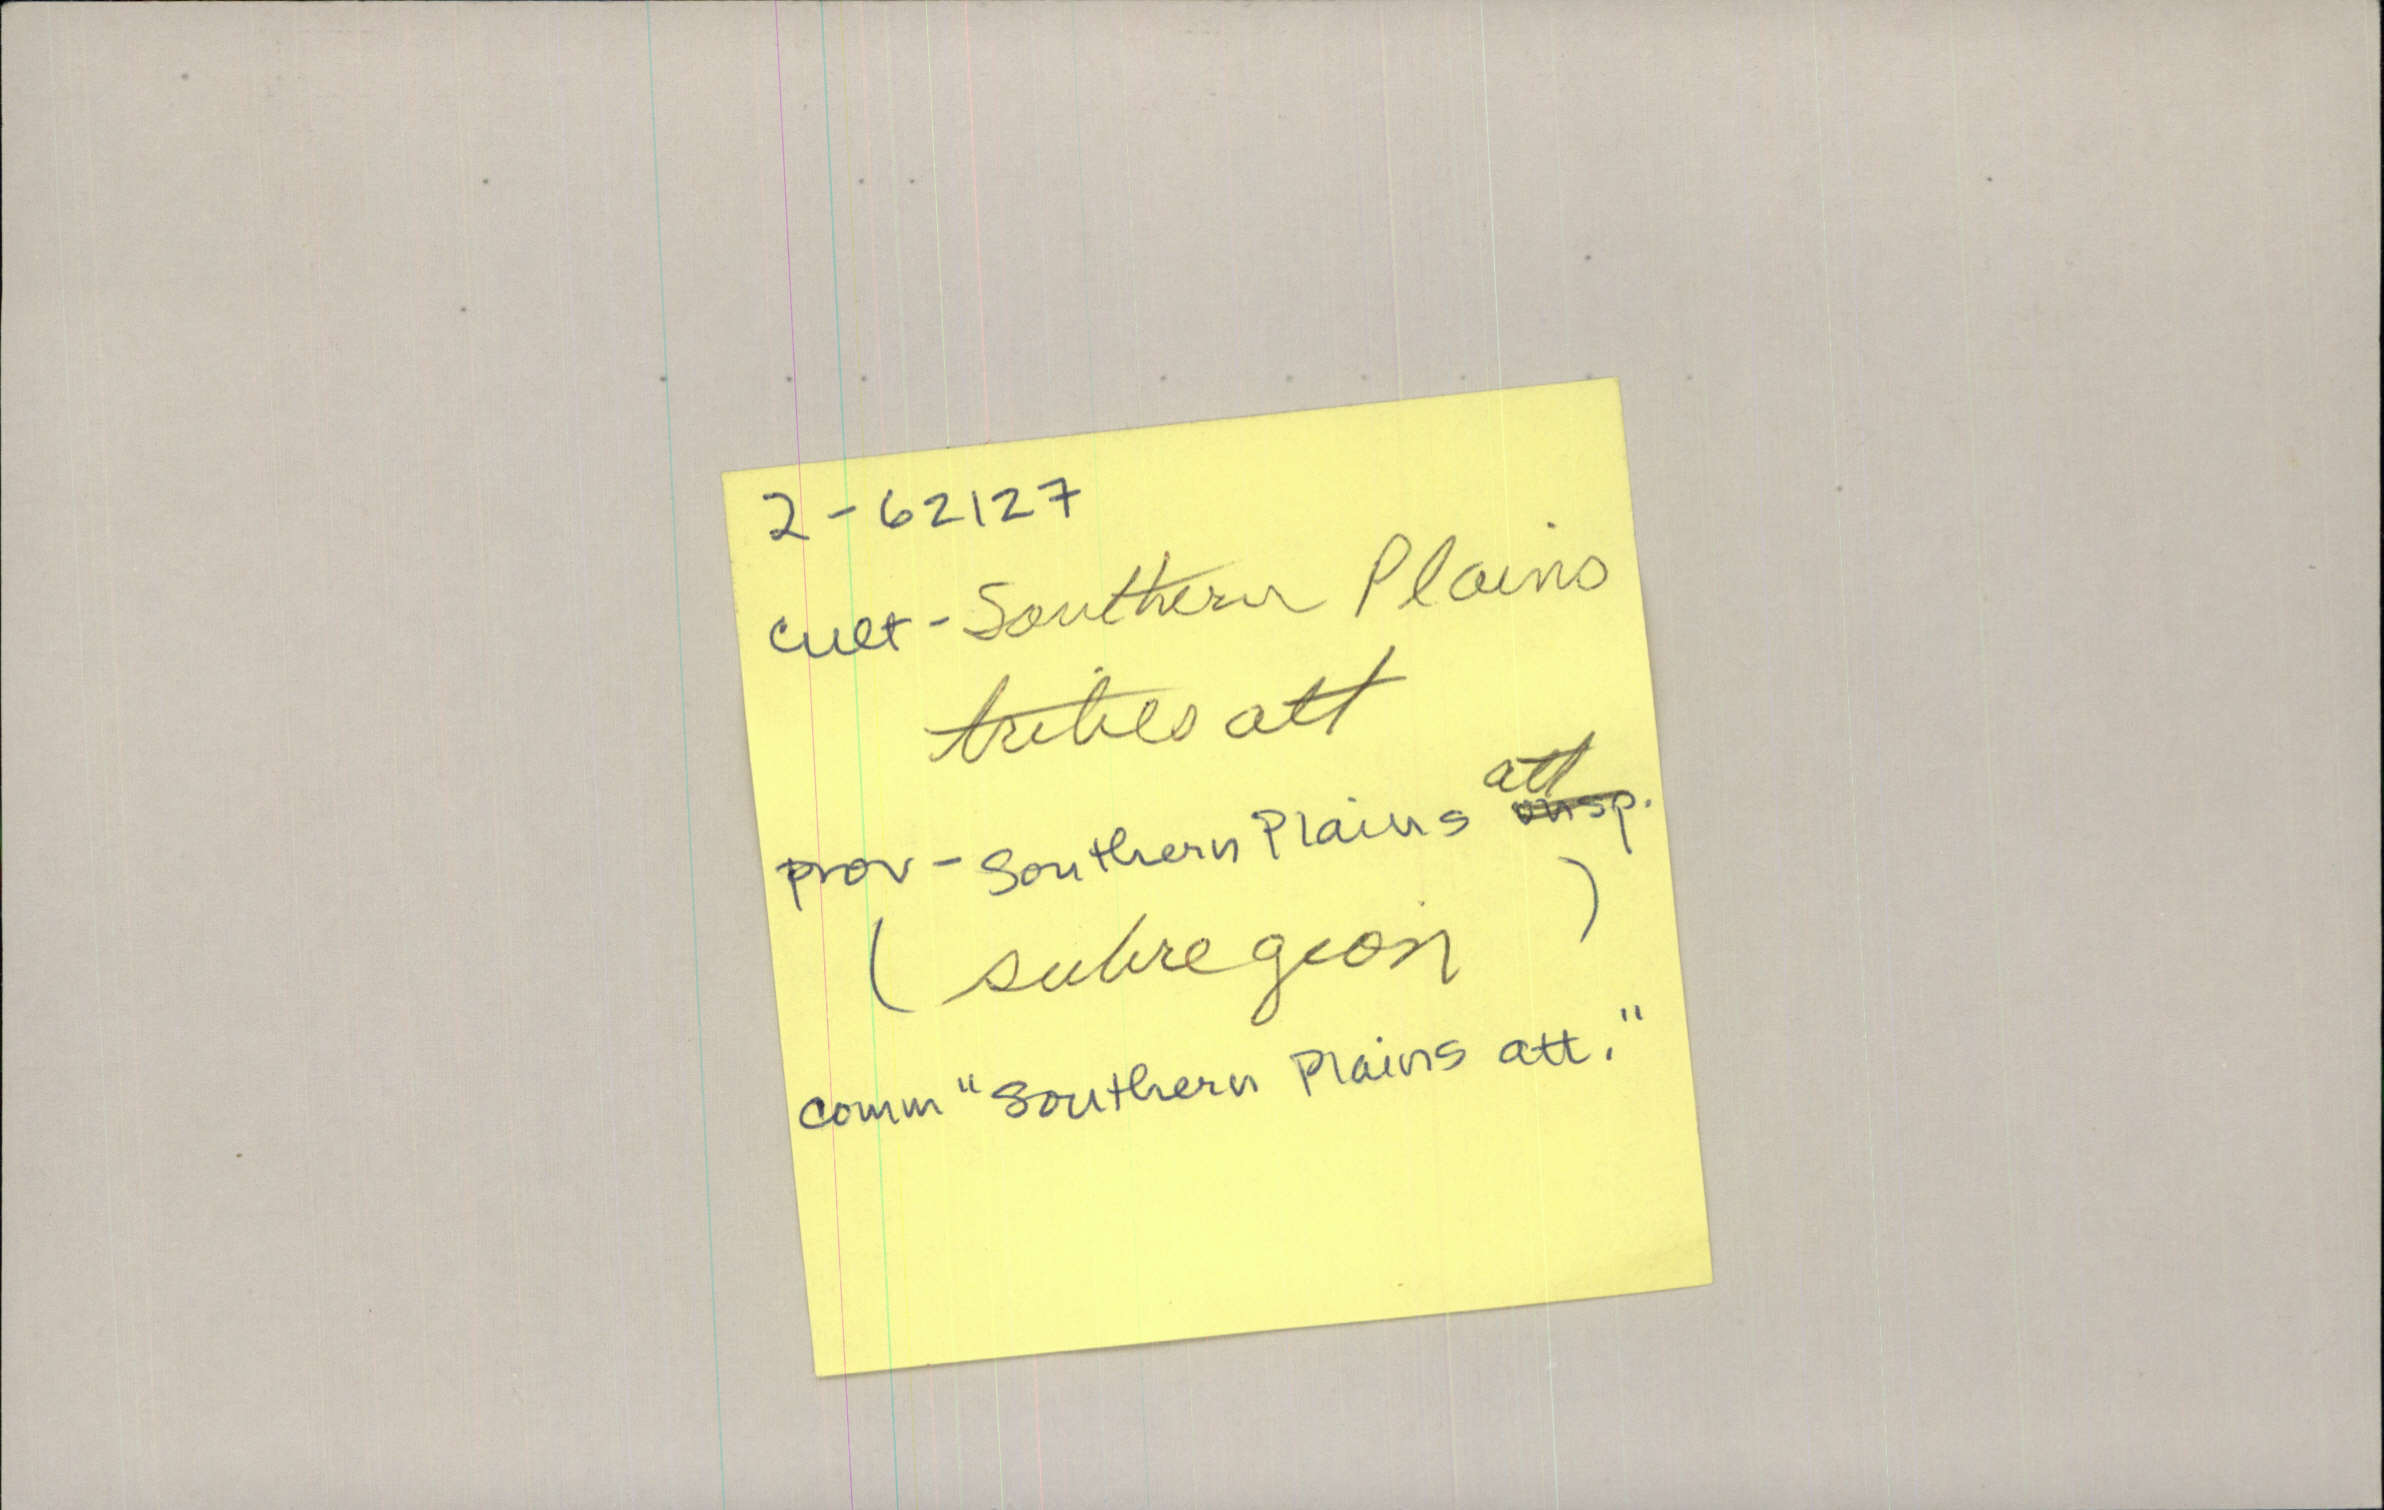 2-62127
cult - Southern Plains
tribes att
att
prov - Southern Plains unsp.
( subregion )
comm "Southern Plains att."